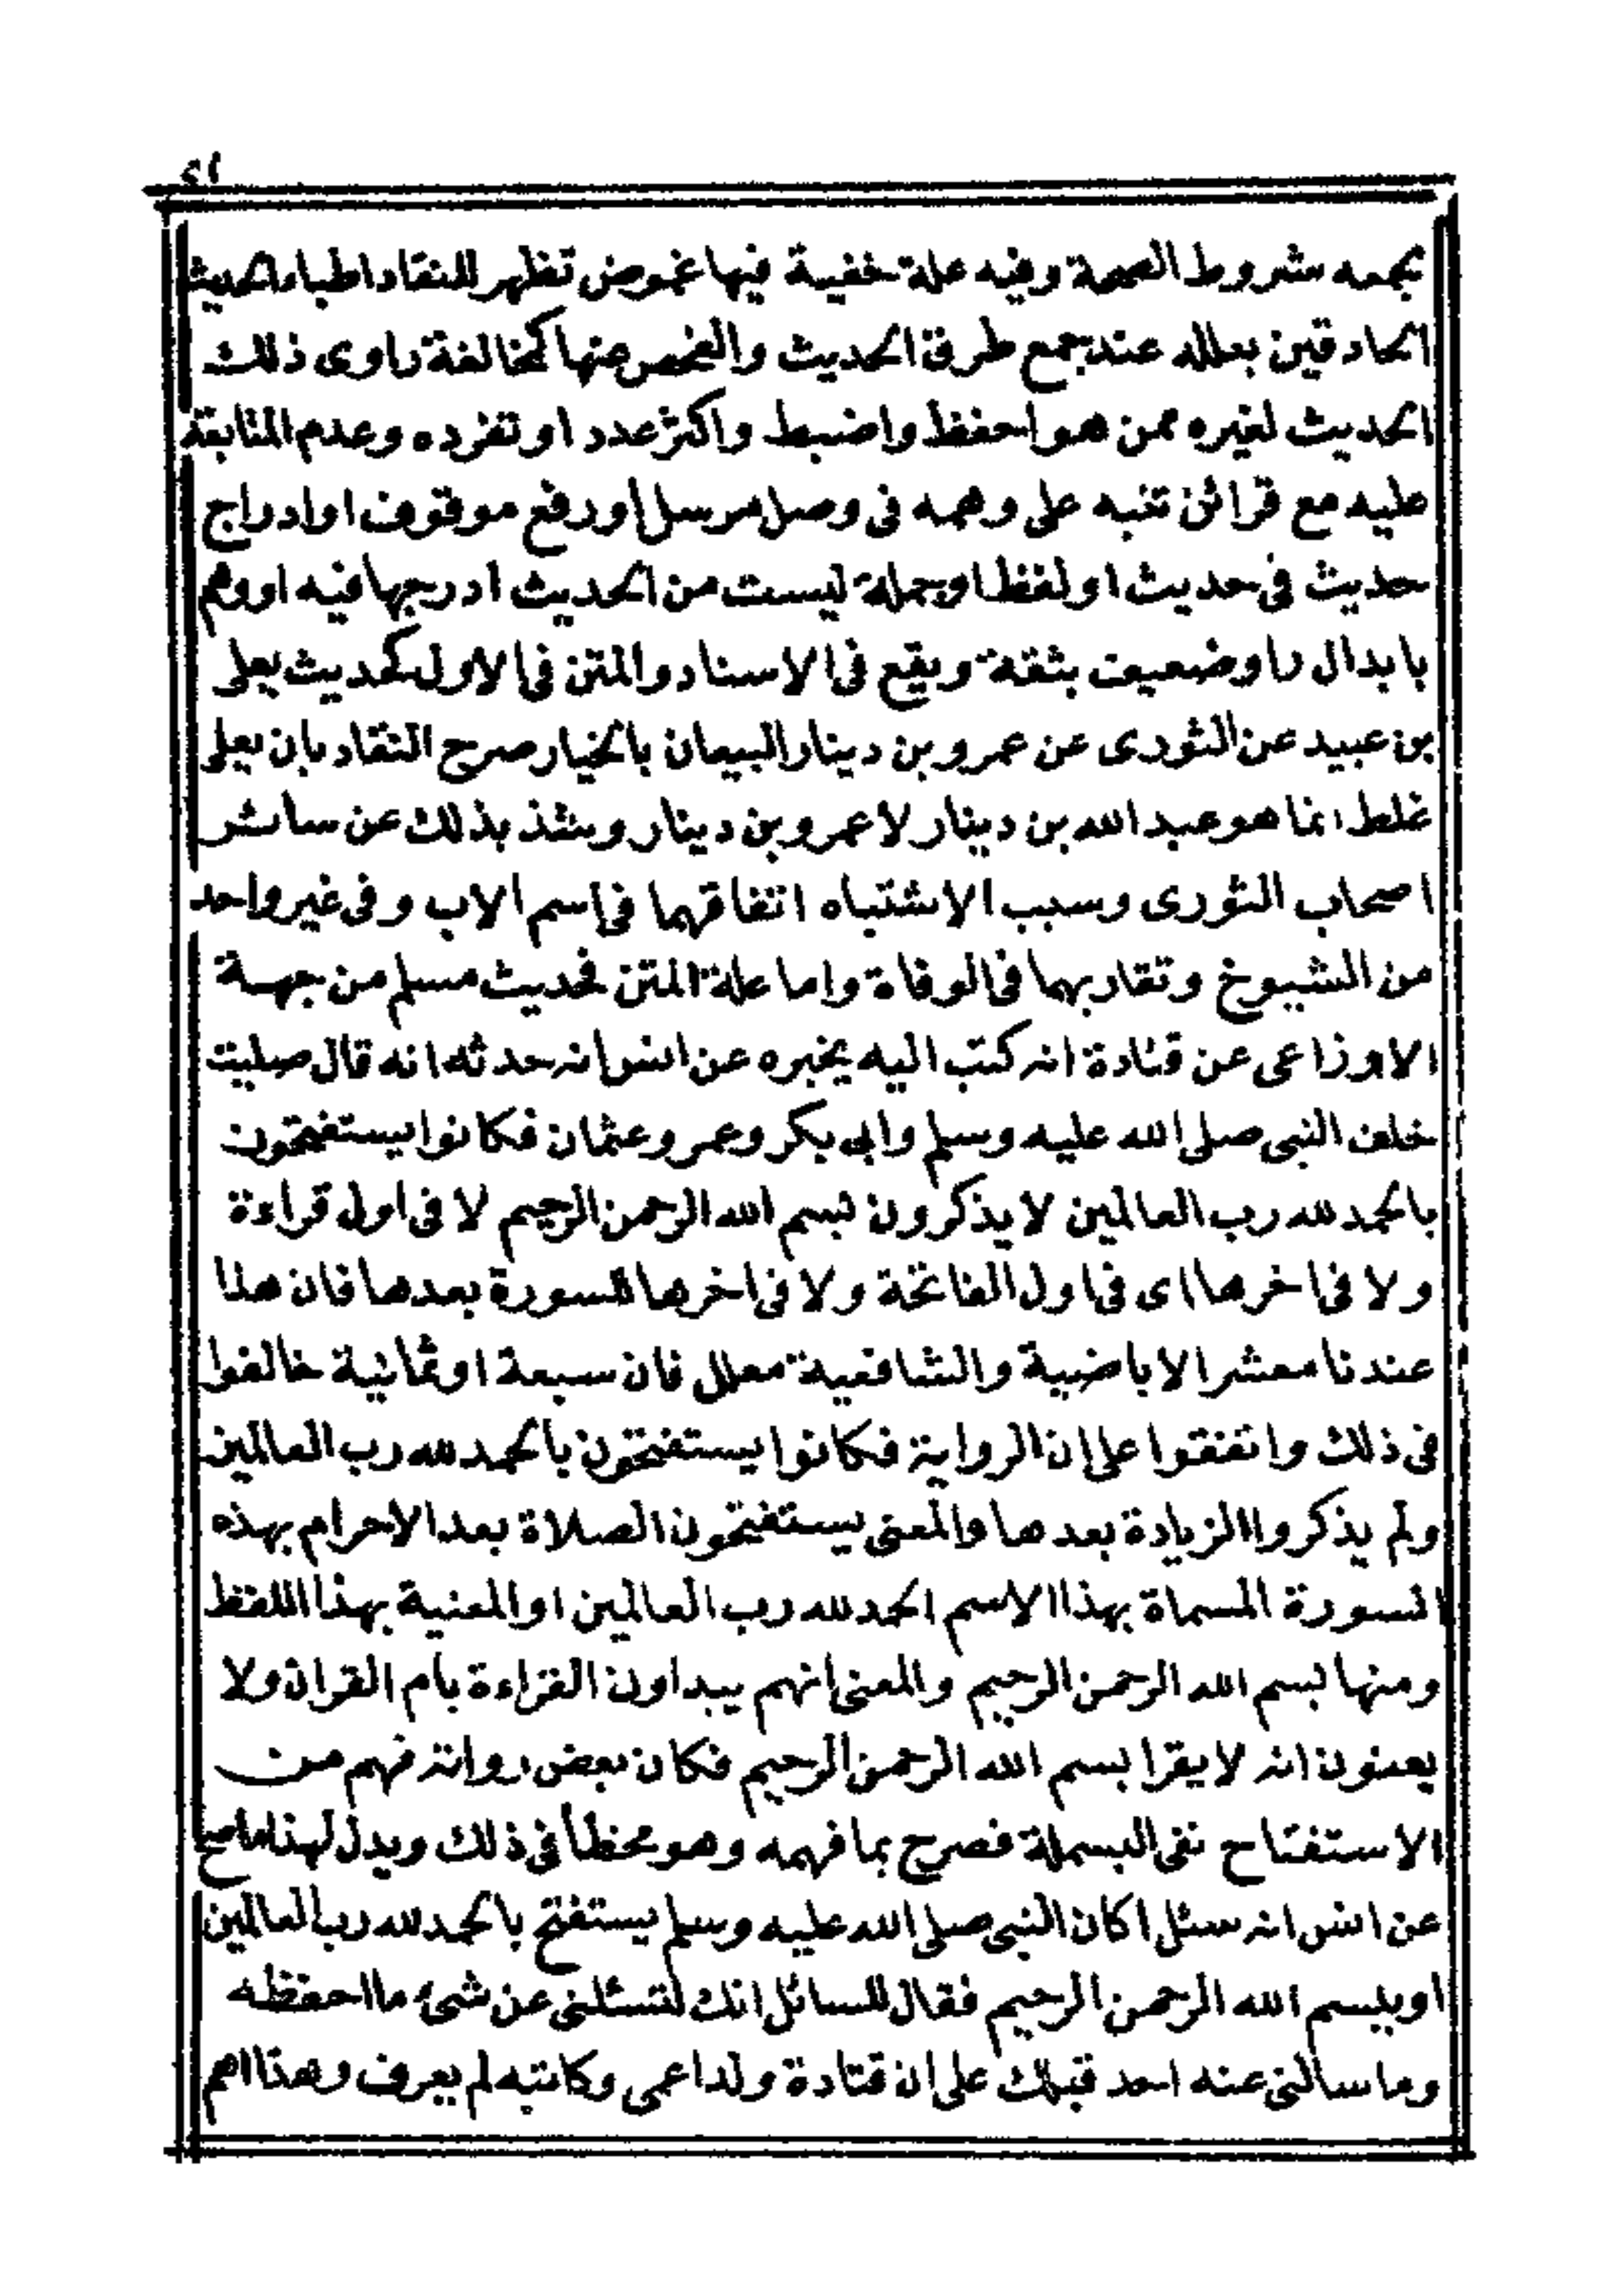 ٤١
بجمعه شروط الصحة وفيه علة خفية فيها غموض تظهر للنقاد اطباء الحديث
الحاذقين بعلله عند جمع طرق الحديث والفحص عنها كمخالفة راوى ذلك
الحديث لغيره ممن هو احفظ واضبط واكثر عدد او تفرده وعدم المتابعة
عليه مع قرائن تنبه على وهمه فى وصل مرسل او رفع موقوف او ادراج
حديث فى حديث او لفظ او جملة ليست من الحديث ادرجها فيه او وهم
بابدال راو ضعيف بثقة ويقع فى الاسناد والمتن فى الاول كحديث يعلى
بن عبيد عن الثورى عن عمرو بن دينار البيعان بالخيار صرح النقاد بان يعلى
غلط انما هو عبد الله بن دينار لا عمرو بن دينار وشذ بذلك عن سائر
اصحاب الثورى وسبب الاشتباه اتفاقهما فى اسم الاب وفى غير واحد
من الشيوخ وتقاربهما فى الوفاة واما علة المتن فحديث مسلم من جهة
الاوزاعى عن قتادة انه كتب اليه يخبره عن انس انه حدثه انه قال صليت
خلف النبى صلى الله عليه وسلم وابى بكر وعمر وعثمان فكانوا يستفتحون
بالحمد لله رب العالمين لا يذكرون بسم الله الرحمن الرحيم لا فى اول قراءة
ولا فى اخرها اى فى اول الفاتحة ولا فى اخرها للسورة بعدها فان هذا
عندنا معشر الاباضية والشافعية معلل فان سبعة او ثمانية خالفوا
فى ذلك واتفقوا على ان الرواية فكانوا يستفتحون بالحمد لله رب العالمين
ولم يذكروا الزيادة بعدها والمعنى يستفتحون الصلاة بعد الاحرام بهذه
السورة المسماة بهذا الاسم الحمد لله رب العالمين او المعنية بهذا اللفظ
ومنها بسم الله الرحمن الرحيم والمعنى انهم يبداون القراءة بام القران ولا
يعنون انه لا يقرا بسم الله الرحمن الرحيم فكان بعض رواته فهم من
الاستفتاح نفى البسملة فصرح بما فهمه وهو مخطأ فى ذلك ويدل لهذا ما صح
عن انس انه سئل اكان النبى صلى الله عليه وسلم يستفتح بالحمد لله رب العالمين
او ببسم الله الرحمن الرحيم فقال للسائل انك لتسئلنى عن شىء ما احفظه
وما سالنى عنه احد قبلك على ان قتادة ولد اعمى وكاتبه لم يعرف وهذا اهم